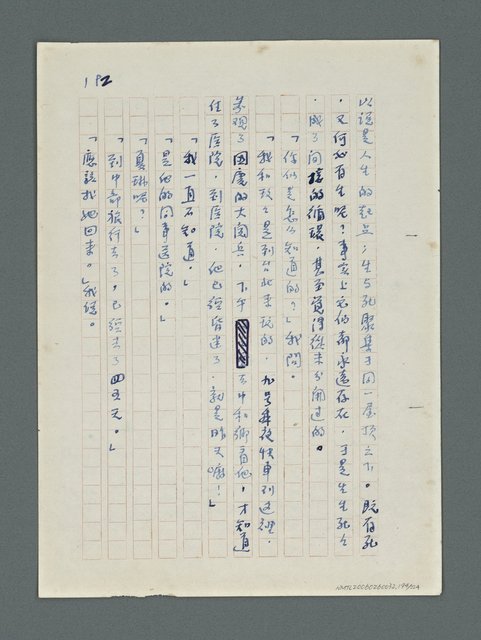 192
以說是人生的駐点;生与死聚集于同一屋頂之下。既有死
,又何必有生呢?事實上它們都永遠存在,于是生生死死
,成了向捺的循環,甚至覺得從未分開過的。
「你們是怎么知道的?」我問。
「我和玫玫是到台北來玩的,九号乘夜快車到這裡,
參觀了國慶的大閱兵,下午去中和鄉看他,才知道
住了医院,到医院,他已經昏迷了,就是昨天嘛!」
「我一直不知道。」
「是他的同事送院的。」
「夏琳呢?」
「到中部旅行去了,已經去了四五天。」
「應該找她回來。」我說。
NMTL20050260032_199/524